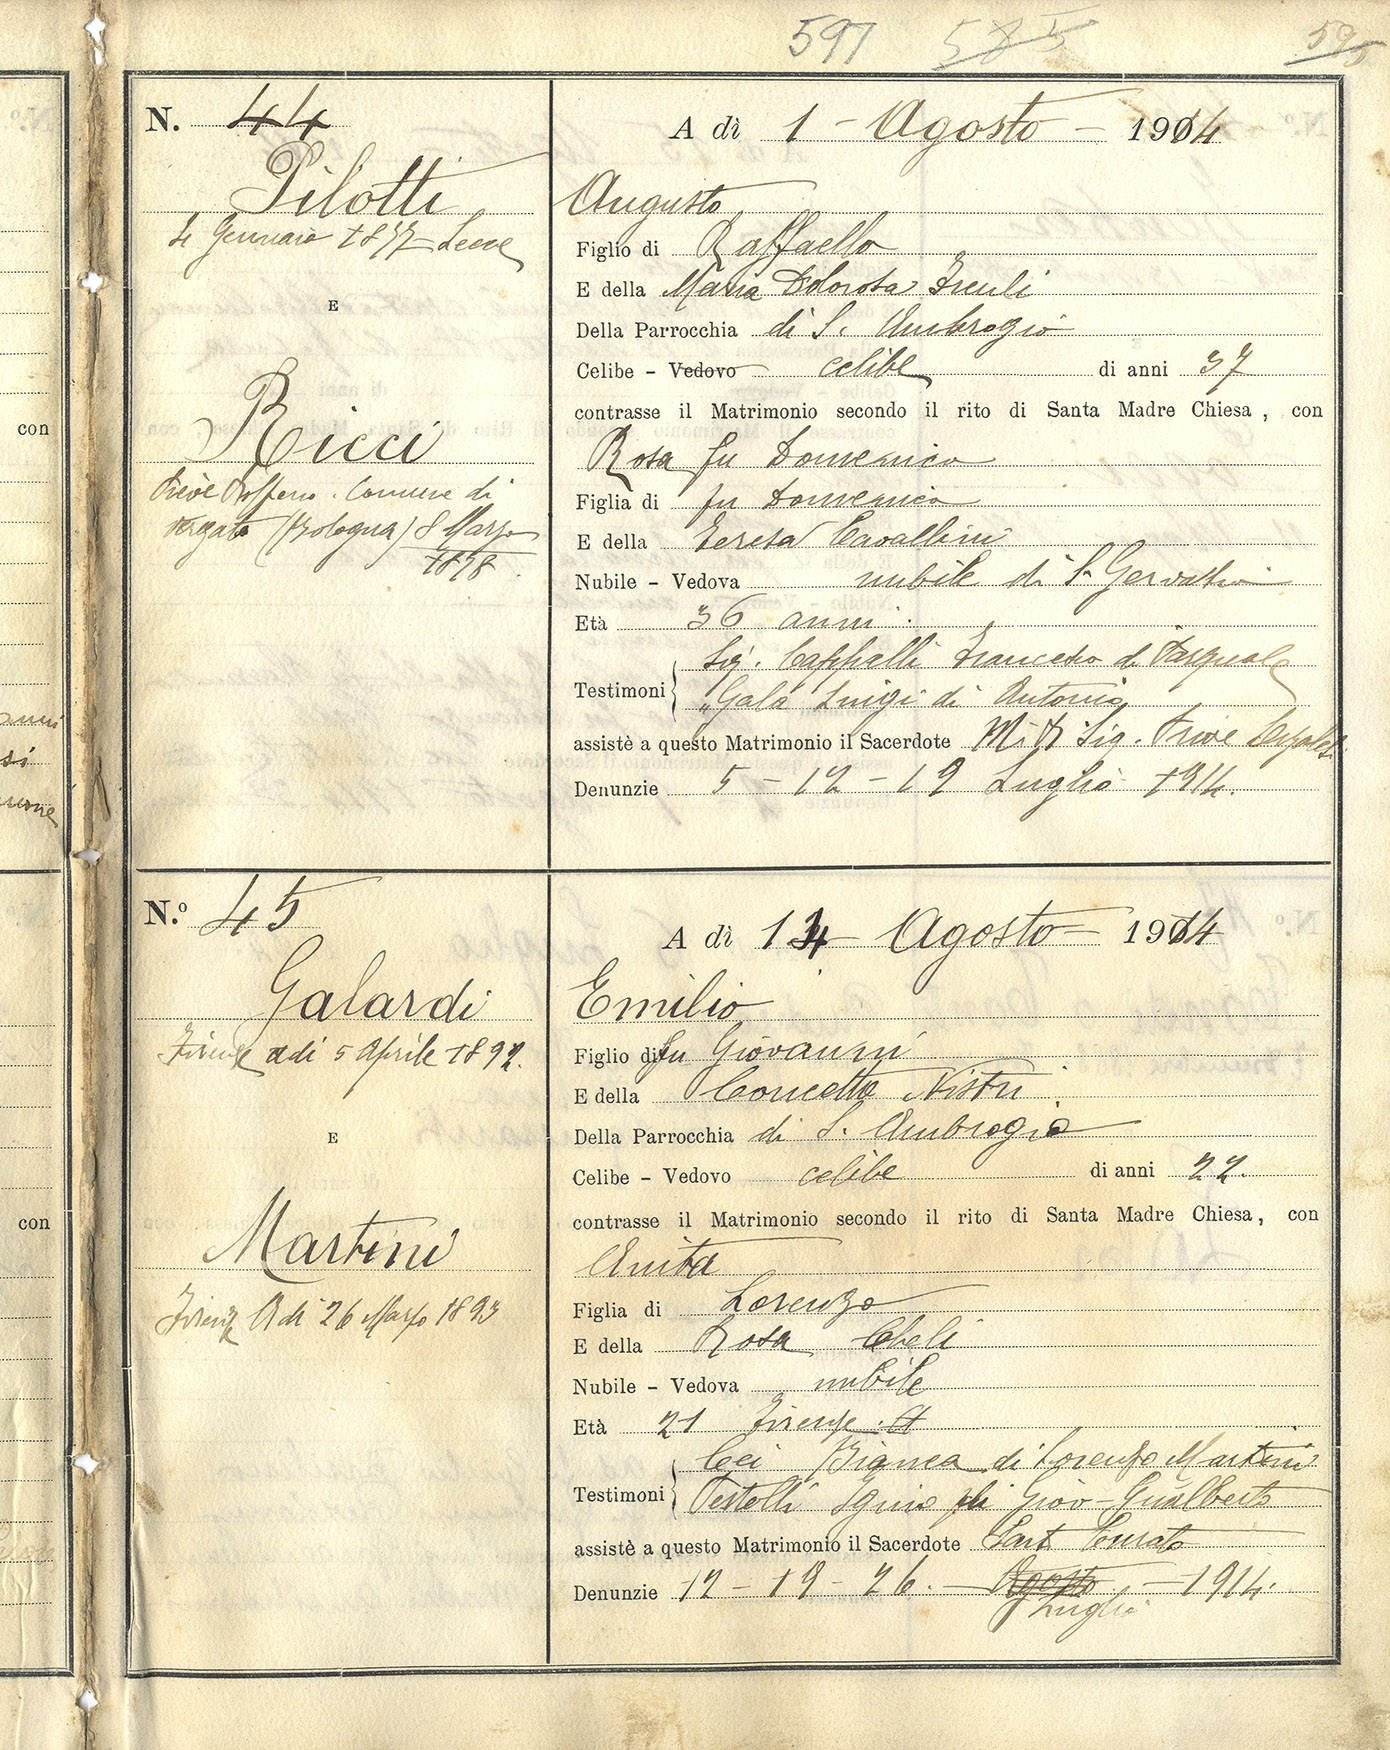 597 585 595
N. 44
Pilotti
4 Gennaio 1877 Lecce
E
Ricci
Pieve Comune di
Vergato (Bologna) 8 Marzo
1878.
A dì 1 - Agosto - 1914
Augusto
Figlio di Raffaello
E della Maria Dolorosa
Della Parrocchia di S. Ambrogio
Celibe - Vedovo celibe di anni 37
contrasse il Matrimonio secondo il rito di Santa Madre Chiesa, con
Rosa fu Domenico
Figlia di fu Domenico
E della Teresa Cavallini
Nubile - Vedova nubile di S. Gervasio
Età 36 anni
Testimoni Sig. Cappelli Francesco di Pasquale
" Galà Luigi di Antonio
assistè a questo Matrimonio il Sacerdote Sig.
Denunzie 5 - 12 - 19 Luglio 1914.
N.º 45
Galardi
Firenze adi 5 Aprile 1892.
E
Martini
Firenze A di 26 Marzo 1893
A dì 14 Agosto - 1914
Emilio
Figlio di fu Giovanni
E della Concetta Nistri
Della Parrocchia di S. Ambrogio
Celibe - Vedovo celibe di anni 22.
contrasse il Matrimonio secondo il rito di Santa Madre Chiesa, con
Anita
Figlia di Lorenzo
E della Rosa Cheli
Nubile - Vedova nubile
Età 21 Firenze. A
Testimoni Cei Bianca di Lorenzo Martini
Testolli Igino di Giov-Gualberto
assistè a questo Matrimonio il Sacerdote Curato
Denunzie 12 - 19 - 26. - Agosto - 1914.
Luglio
con
con